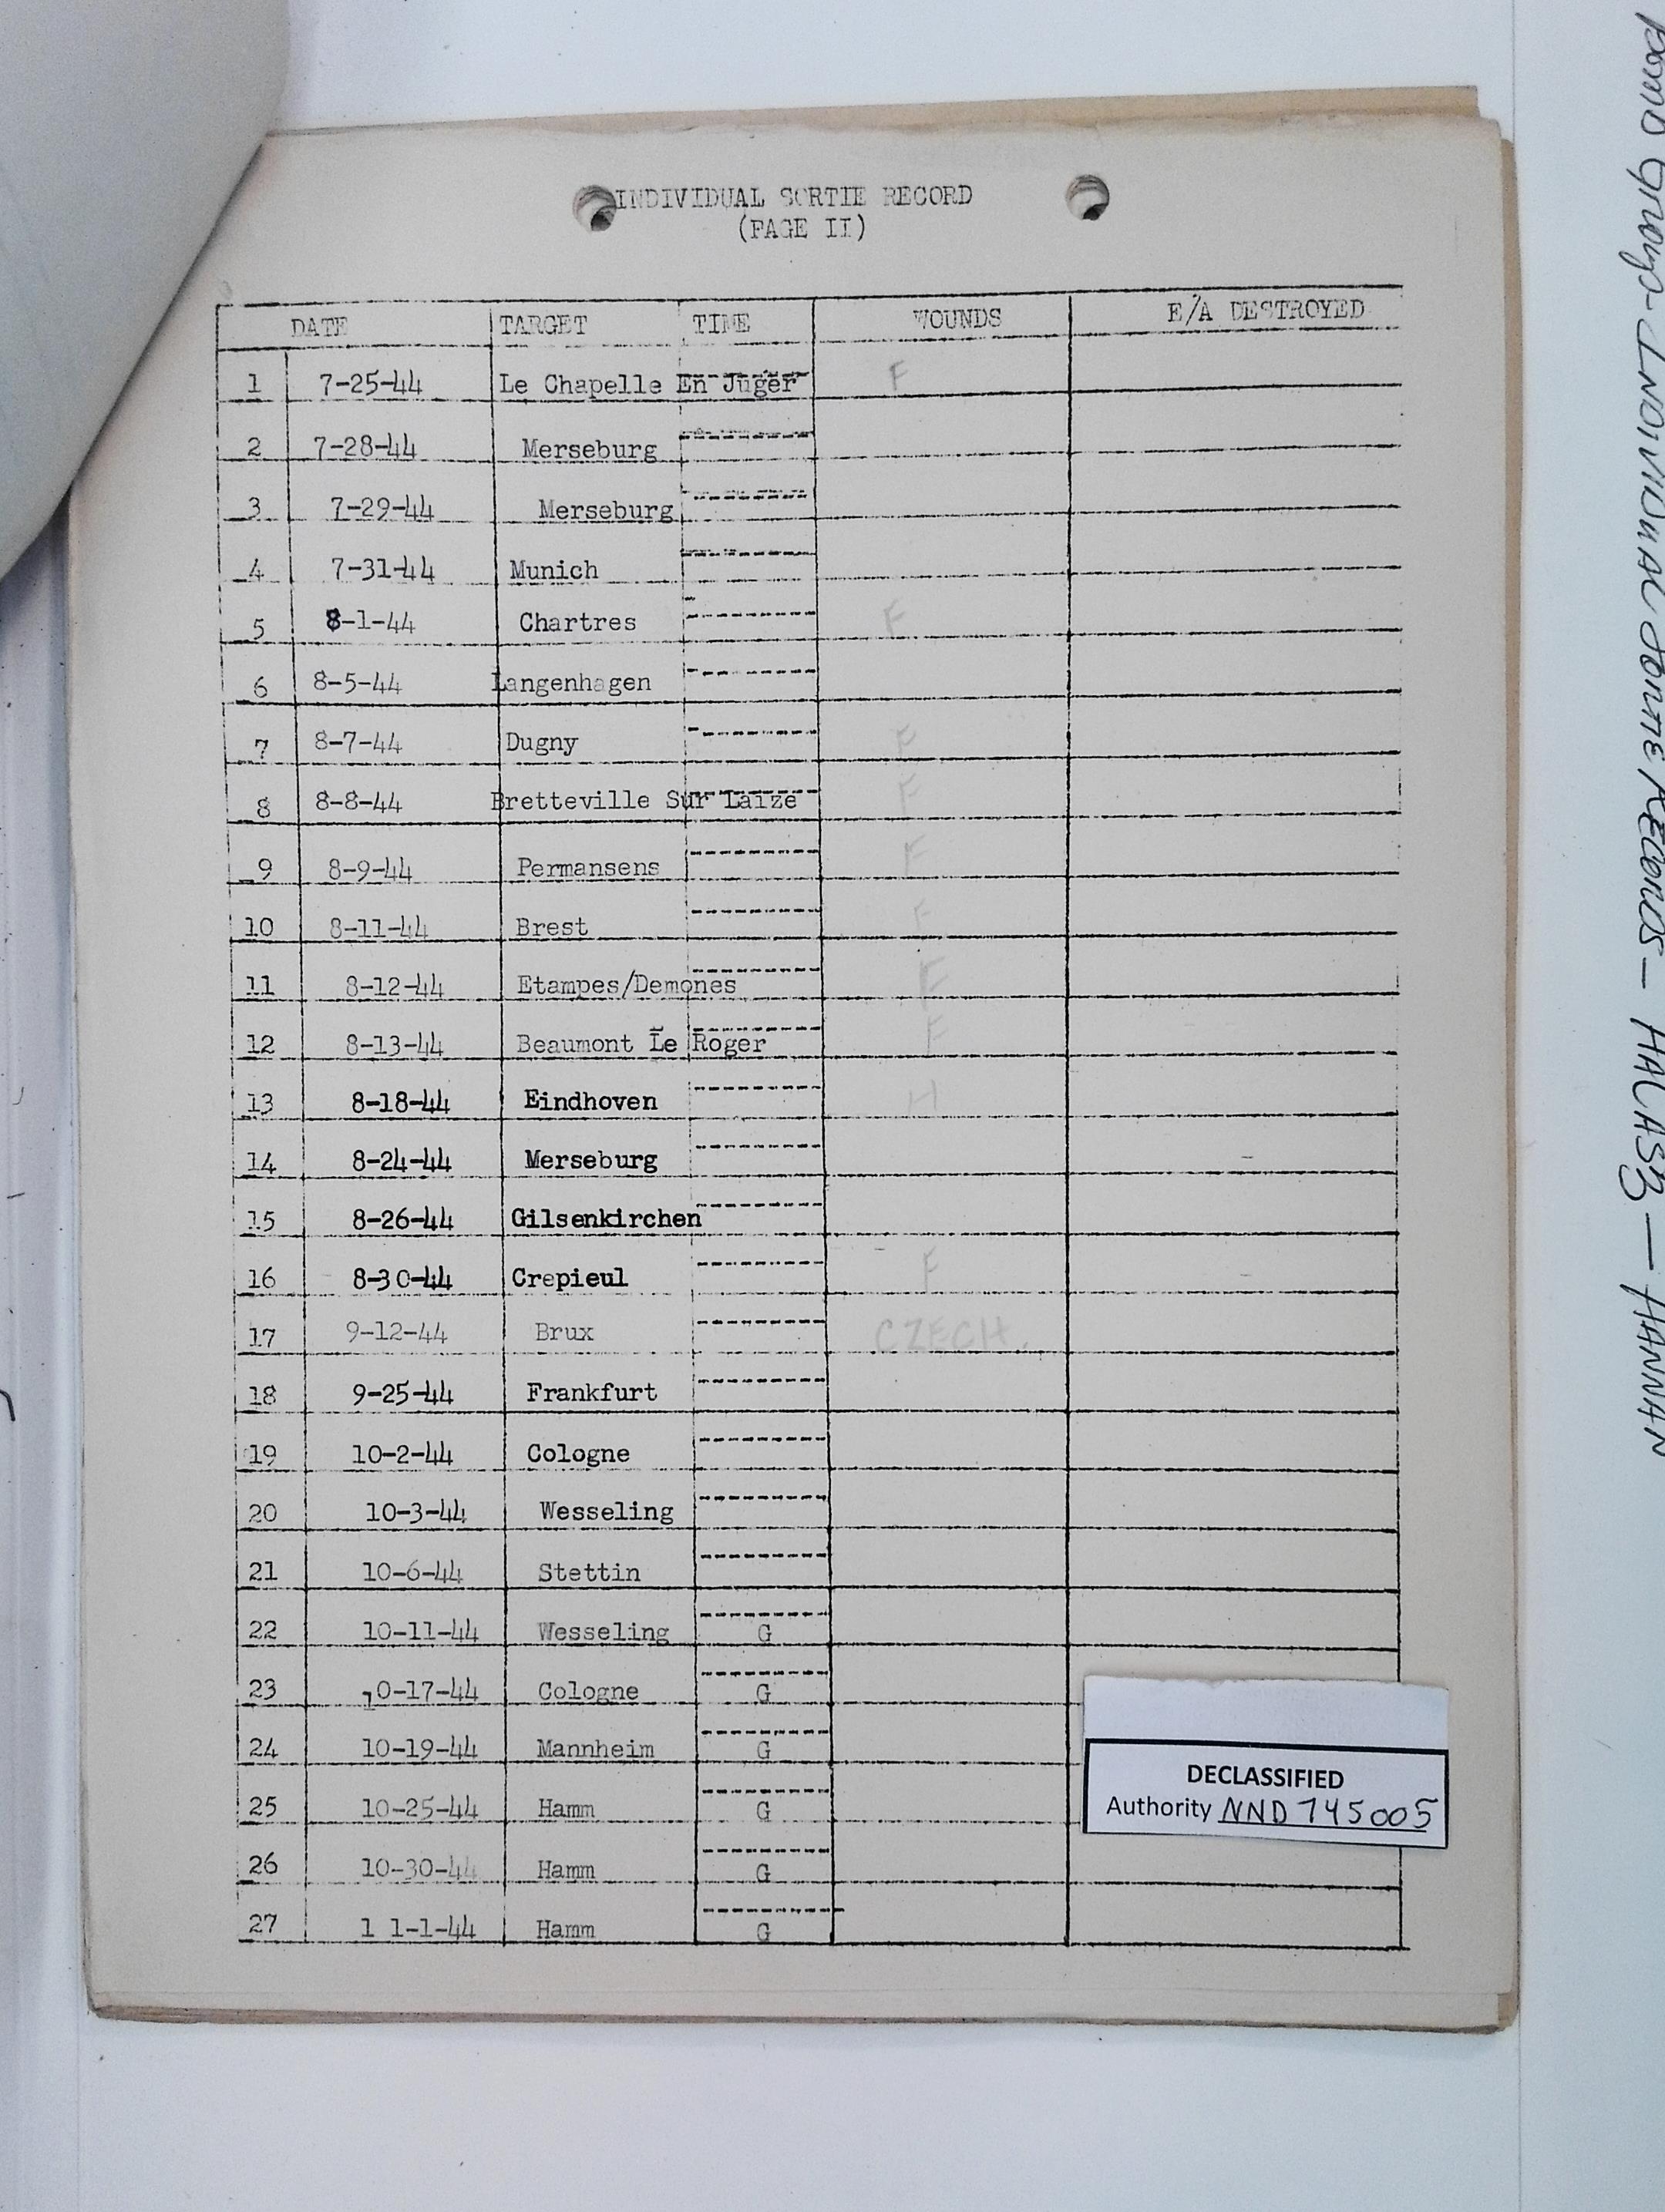 INDIVIDUAL SORTIE RECORD
(PAGE II)
DATE TARGET TIME WOUNDS E/A DESTROYED
1 7-25-44 Le Chapelle En Juger F
2 7-28-44 Merseburg
3 7-29-44 Merseburg
4 7-31-44 Munich
5 8-1-44 Chartres F
6 8-5-44 Langenhagen
7 8-7-44 Dugny F
8 8-8-44 Bretteville Sur Laize F
9 8-9-44 Permansens F
10 8-11-44 Brest F
11 8-12-44 Etampes/Demones F
12 8-13-44 Beaumont Le Roger F
13 8-18-44 Eindhoven H
14 8-24-44 Merseburg
15 8-26-44 Gilsenkirchen
16 8-30-44 Crepieul F
17 9-12-44 Brux CZECH.
18 9-25-44 Frankfurt
19 10-2-44 Cologne
20 10-3-44 Wesseling
21 10-6-44 Stettin
22 10-11-44 Wesseling G
23 10-17-44 Cologne G
24 10-19-44 Mannheim G
25 10-25-44 Hamm G
26 10-30-44 Hamm G
27 1 1-1-44 Hamm G
DECLASSIFIED
Authority NND 745005
Bomb Group - INDIVIDUAL SORTIE RECORDS - HALASZ - HANNAN